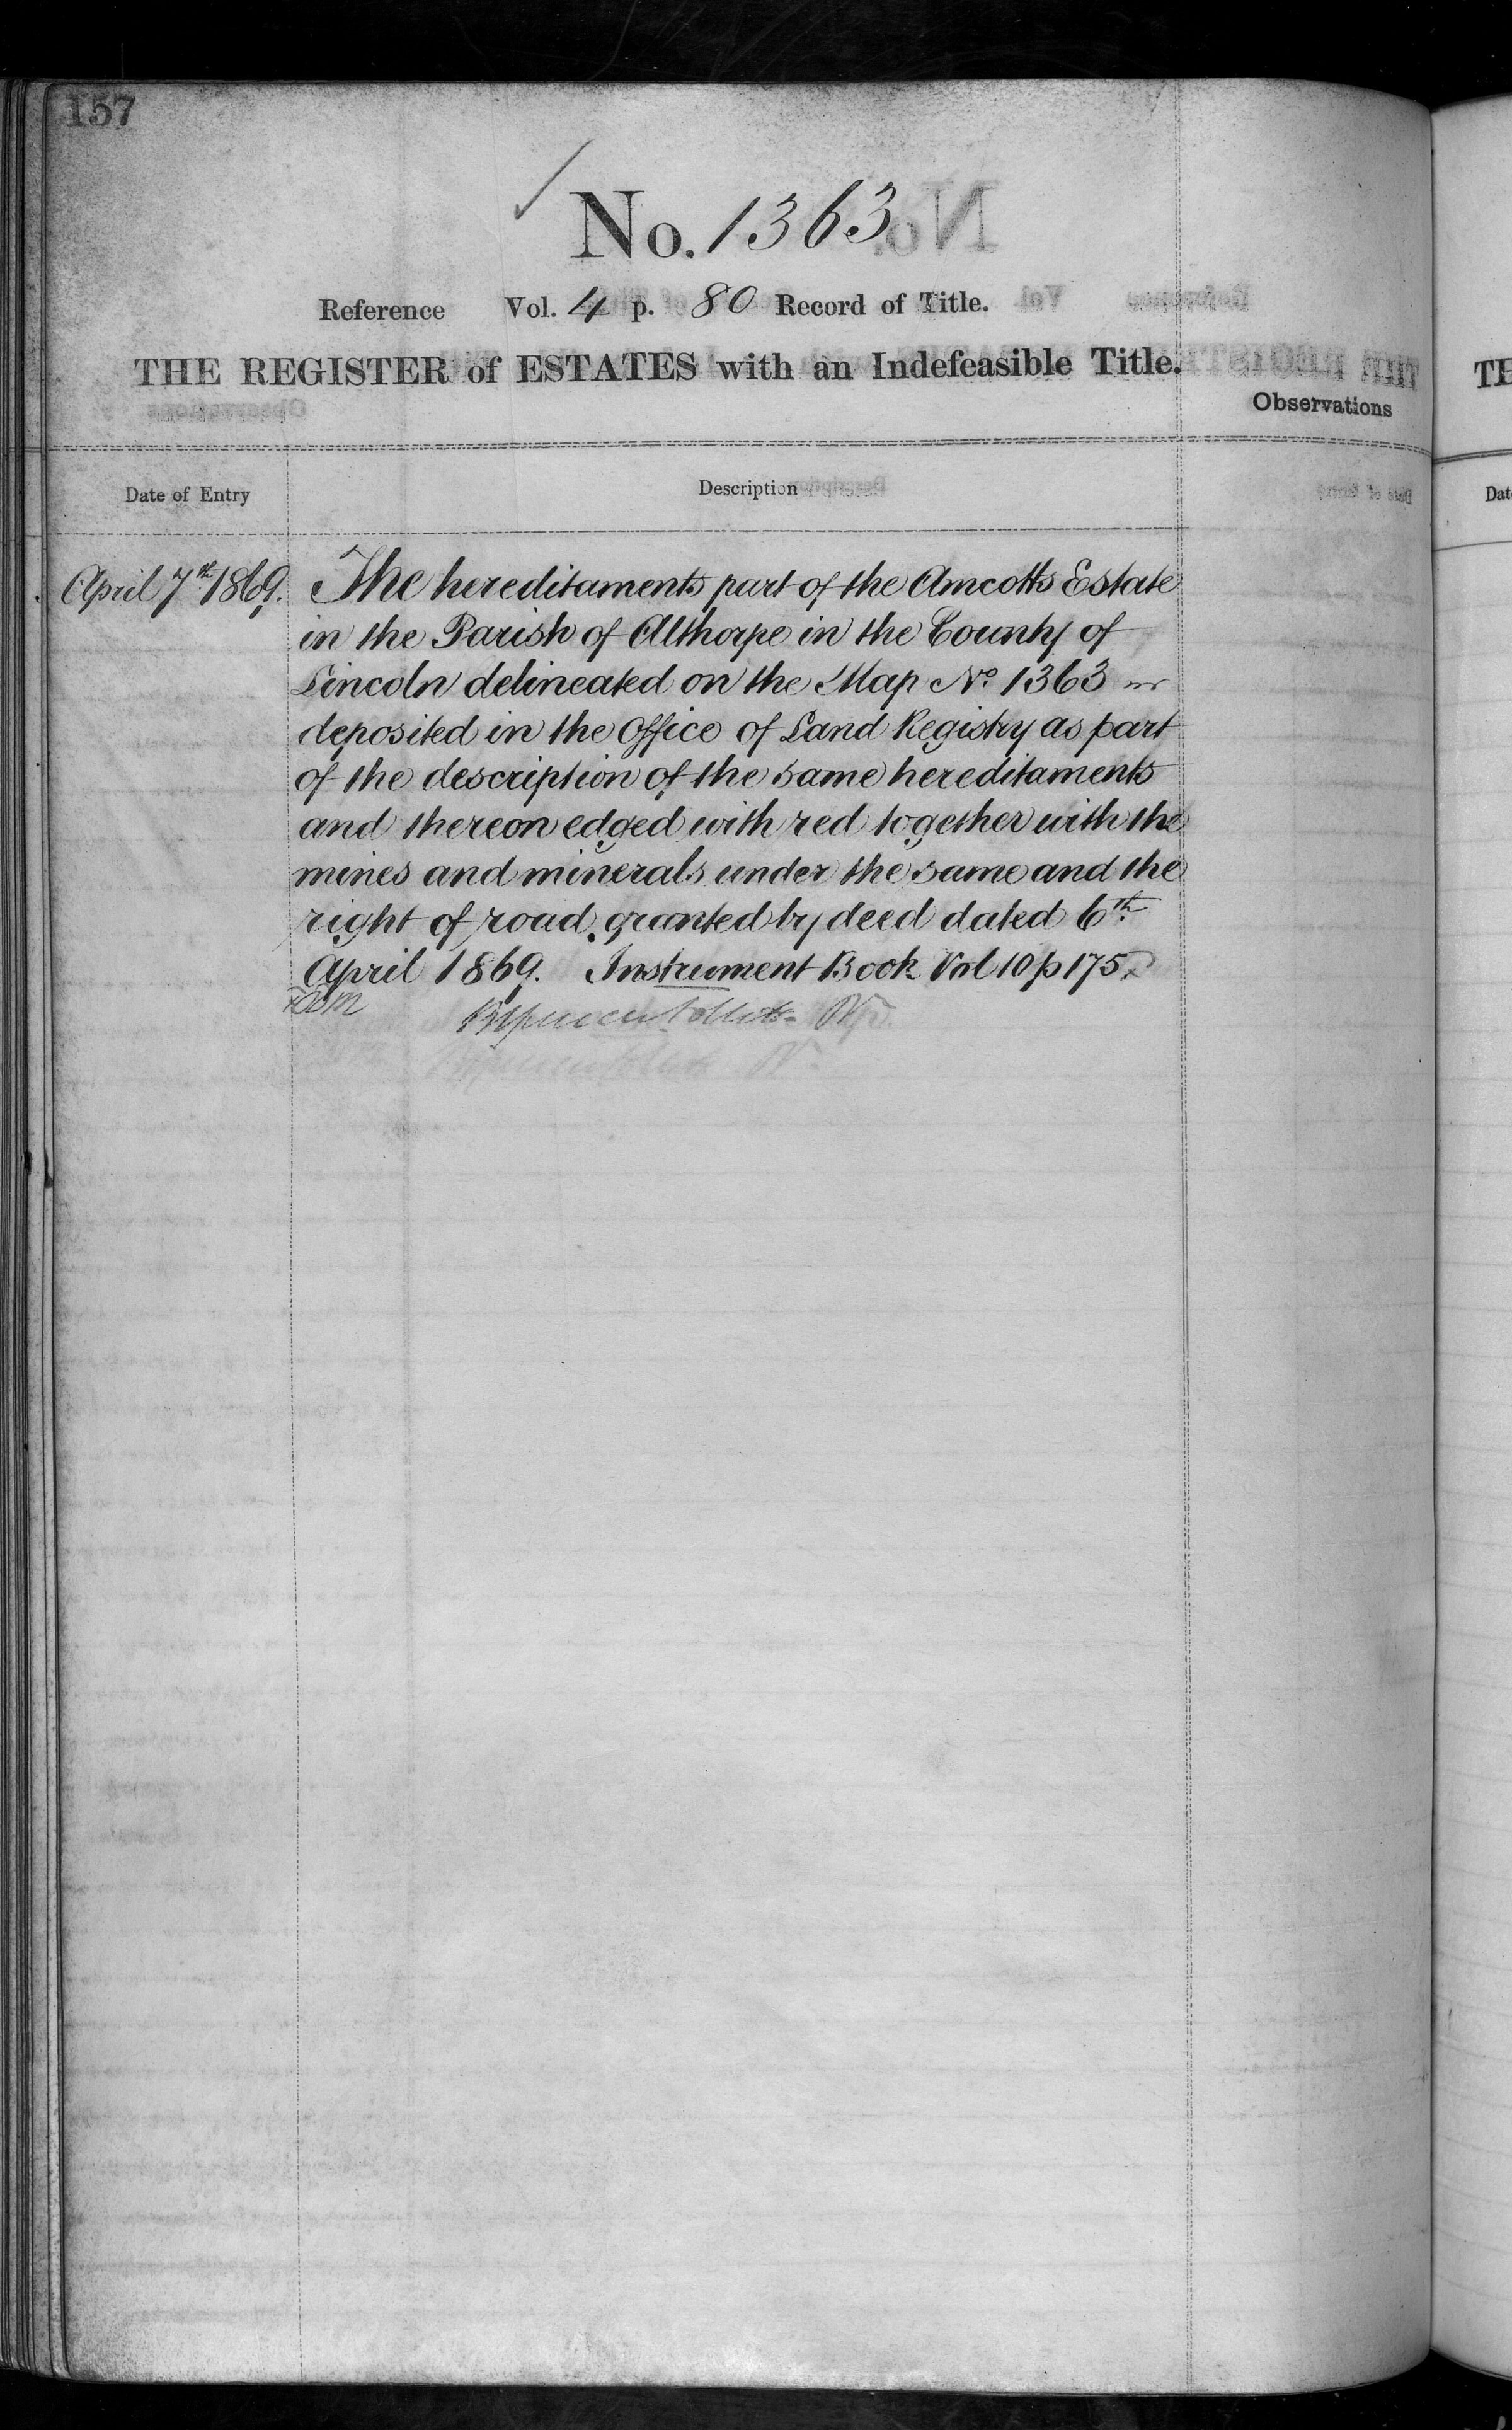 157
No. 1363
Reference Vol. 4 p. 80 Record of Title.
THE REGISTER of ESTATES with an Indefeasible Title.
Observations
Date of Entry
Description
April 7th 1869.
The hereditaments part of the Amcotts Estate
in the Parish of Althorpe in the County of
Lincoln delineated on the Map No 1363
deposited in the Office of Land Registry as part
of the description of the same hereditaments
and thereon edged with red together with the
mines and minerals under the same and the
right of road granted by deed dated 6th
April 1869. Instrument Book Vol 10 p 175
TH
Dat